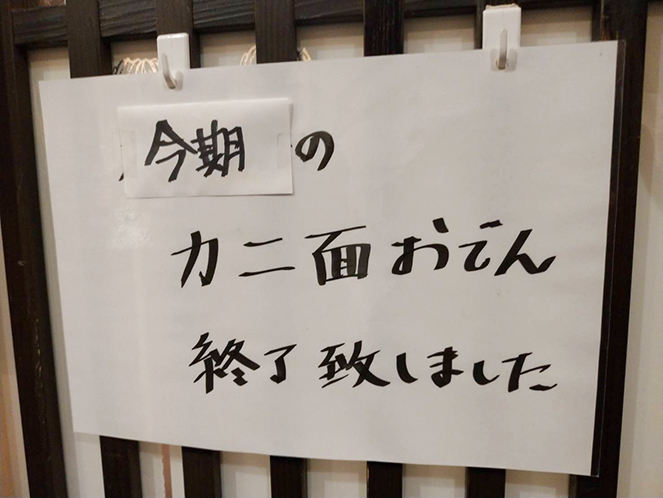 今期の
カニ面おでん
終了致しました